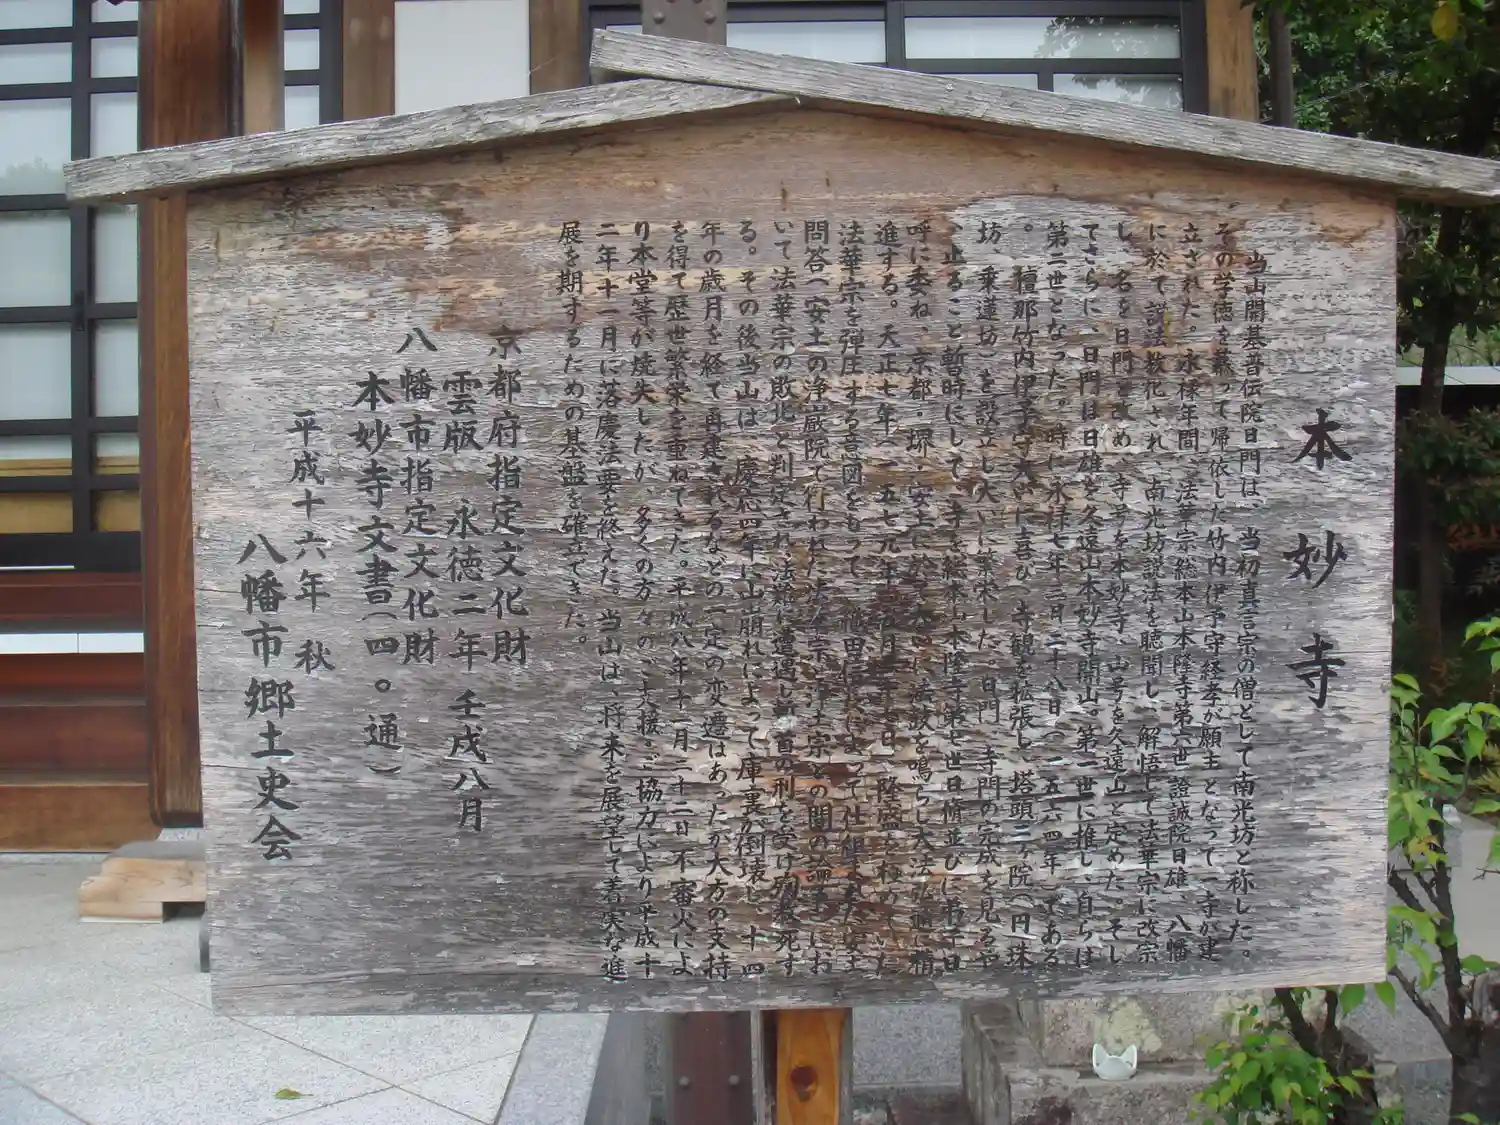 本妙寺
当山開基普伝院日門は、当初真言宗の僧として南光坊と称した。
その学徳を慕って帰依した竹内伊予守経孝が願主となって一寺が建
立された。永禄年間、法華宗総本山本隆寺第六世證誠院日雄、八幡
に於て説法教化され、南光坊説法を聴聞し、解悟して法華宗に改宗
し、名を日門と改め、寺号を本妙寺、山号を久遠山と定めた。そし
てさらに、日門は日雄を久遠山本妙寺開山、第一世に推し、自らは
第二世となった。時に永禄七年三月二十八日(一五六四年)である
。檀那竹内伊予守大いに喜び、寺観を拡張し、塔頭二ヶ院(円珠
坊・乗蓮坊)を設立し大いに栄えした。日門、寺門の完成を見るや
、止ること暫時にして、寺を総本山本隆寺第七世日脩並びに弟子日
呼に委ね、京都・堺・安土に於て大いに法鼓を鳴らし大法弘通に精
進する。天正七年(一五七九年)五月
法華宗を弾圧する意図をもって、織田信長によって仕組まれた安土
問答(安土の浄厳院で行われた法華宗と浄土宗との間の論争)にお
いて法華宗の敗北と判定され、法難に遭遇し斬首の刑を受け殉教死す
る。その後当山は、慶応四年に山崩れによって庫裏が倒壊し、十四
年の歳月を経て再建されるなどの一定の変遷はあったが大方の支持
を得て歴世繁栄を重ねてきた。平成八年十二月二十二日不審火によ
り本堂等が焼失したが、多くの方々のご支援・ご協力により平成十
二年十一月に落慶法要を終えた。当山は、将来を展望して着実な進
展を期するための基盤を確立できた。
京都府指定文化財
雲版 永徳二年 壬戌八月
八幡市指定文化財
本妙寺文書(四〇通)
平成十六年 秋
八幡市郷土史会